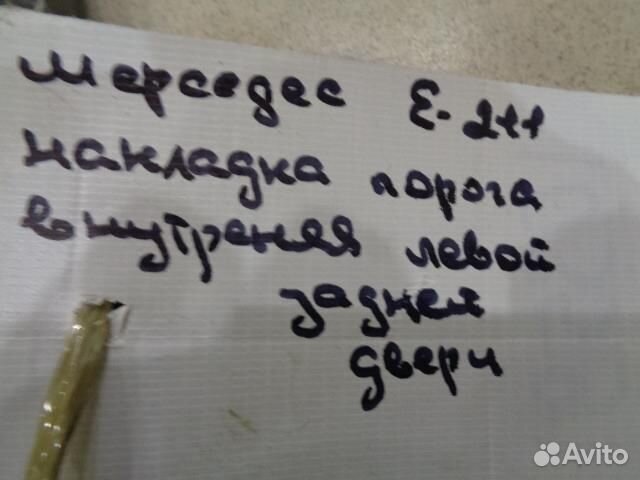 Мерседес Е-211
накладка порога
внутреняя левой
задней
двери
Avito